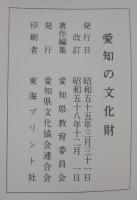 愛知の文化財
発行日 昭和五十五年三月三十一日
改訂 昭和五十八年十二月一日
著作編集 愛知県教育委員会
発行 愛知県文化協会連合会
印刷者 東海プリント社